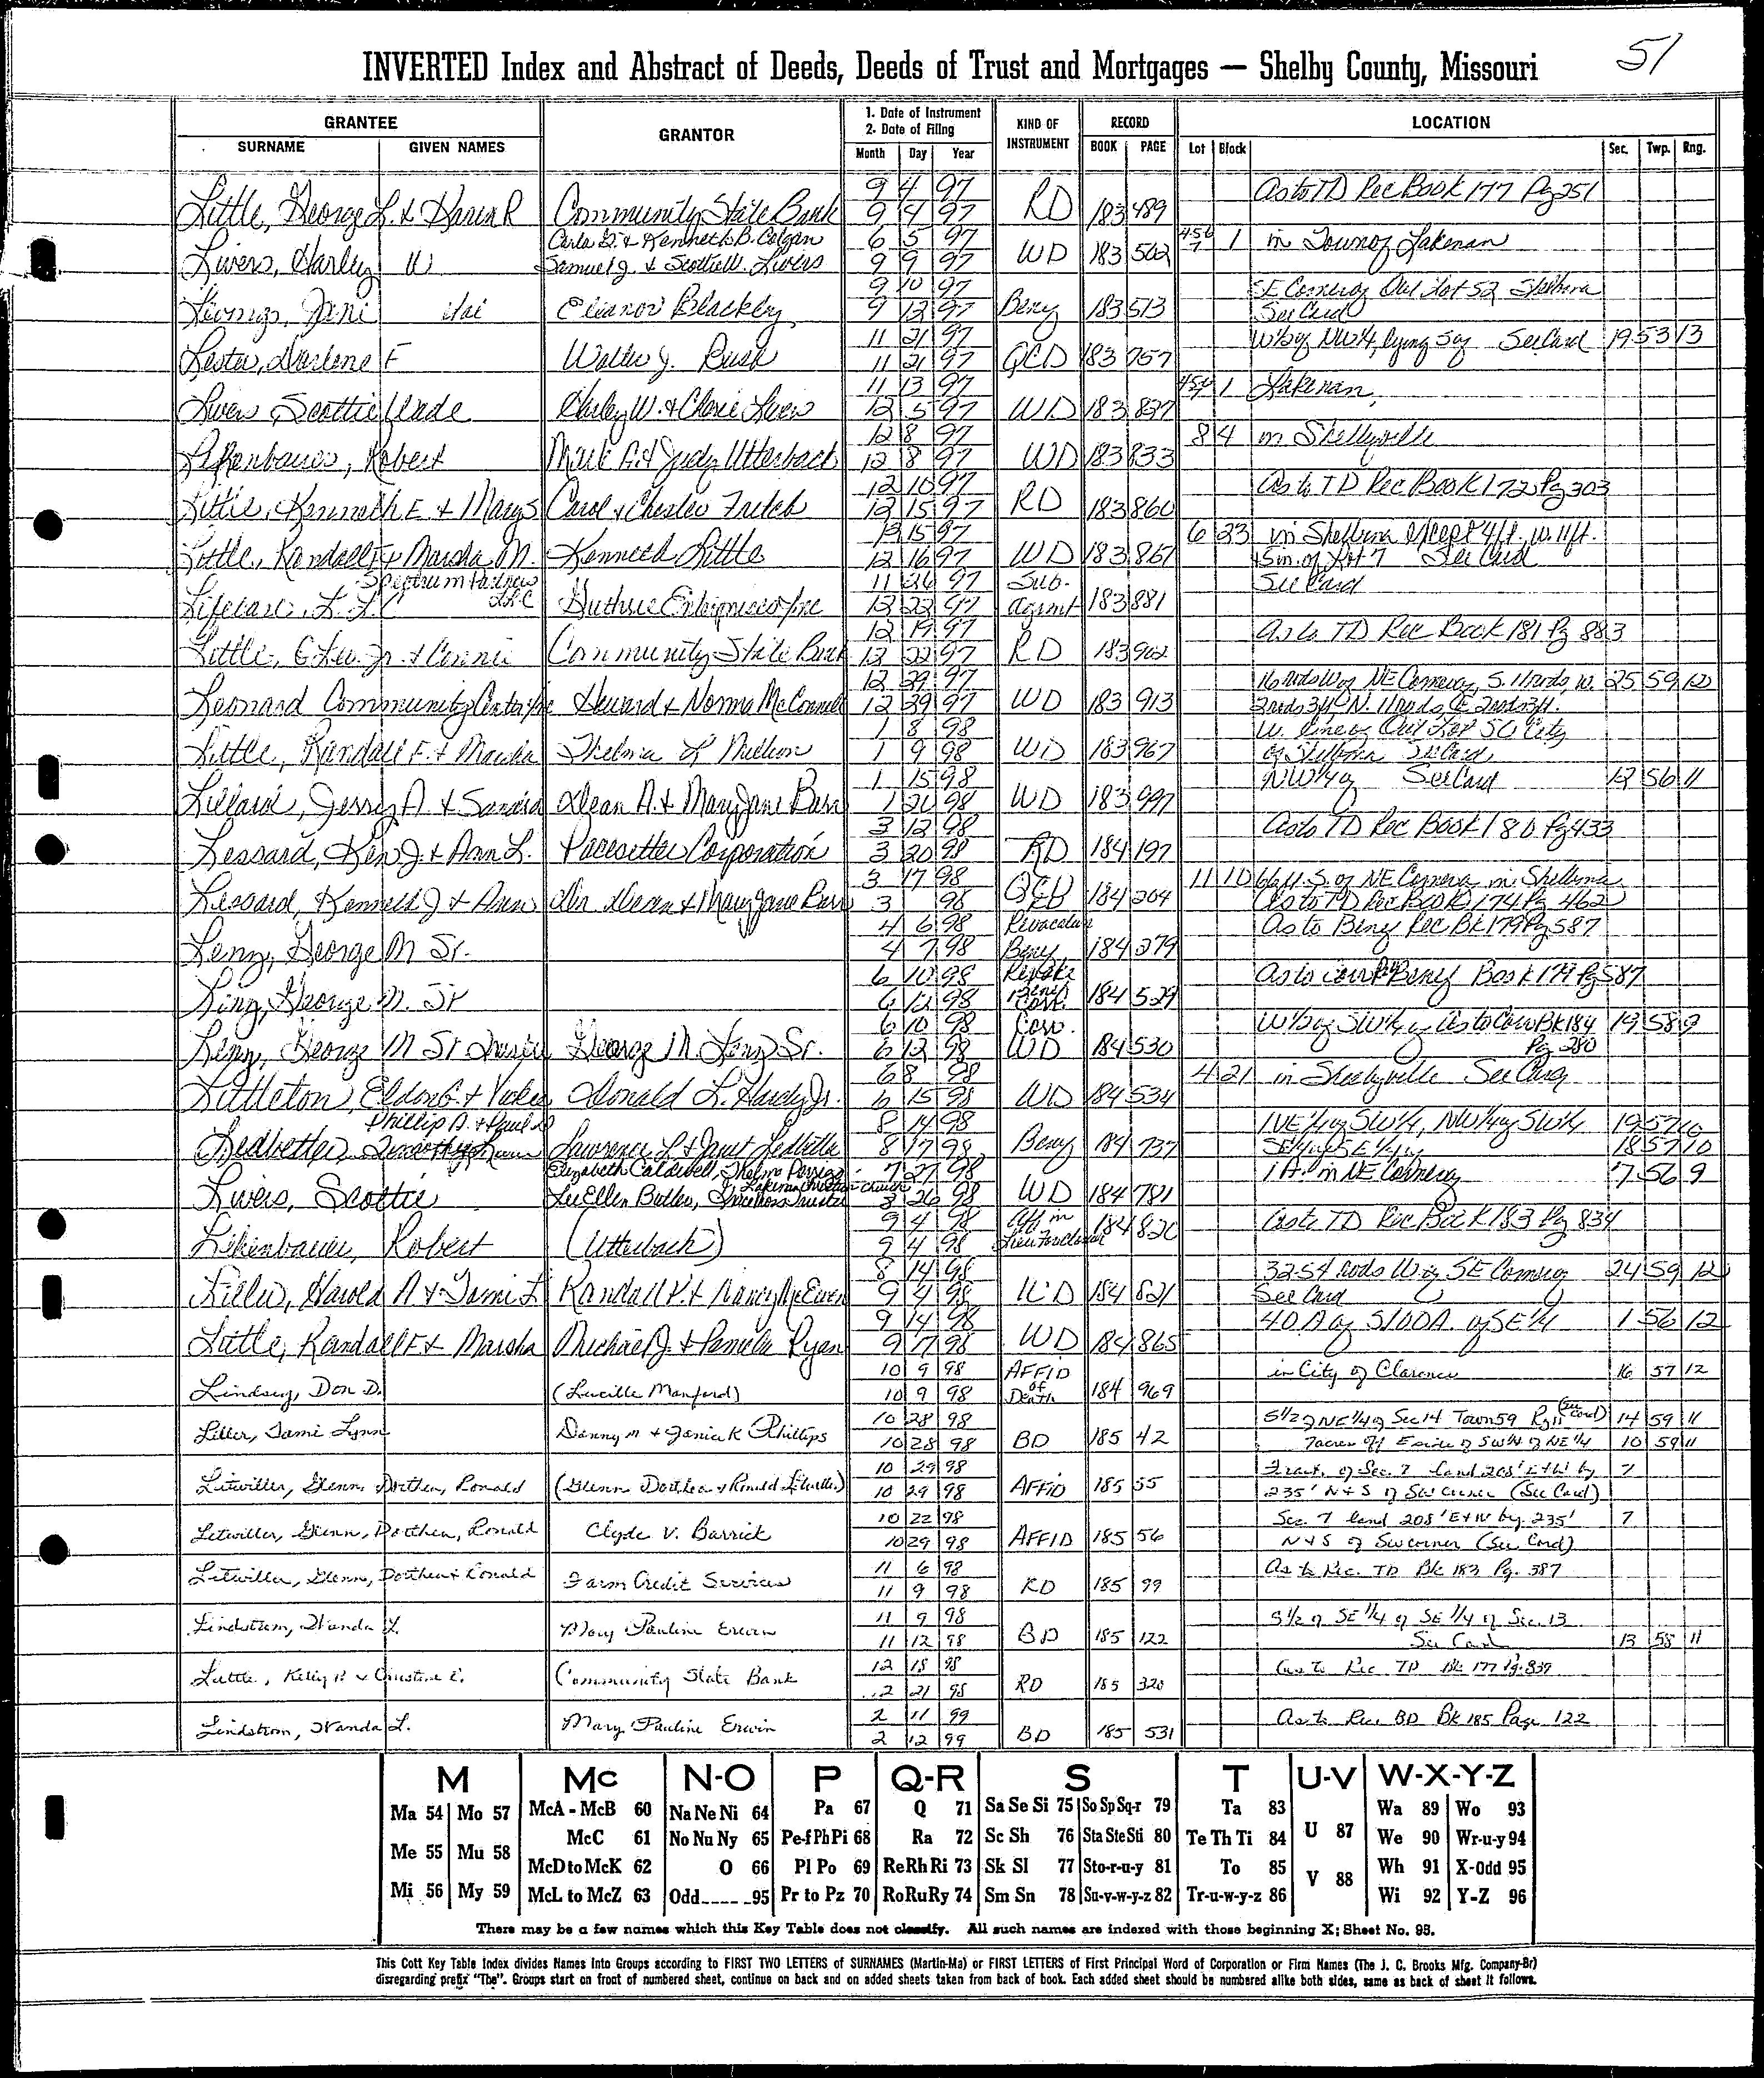 51
INVERTED Index and Abstract of Deeds, Deeds of Trust and Mortgages — Shelby County, Missouri
GRANTEE GRANTOR 1. Date of Instrument 2. Date of Filing KIND OF INSTRUMENT RECORD LOCATION
SURNAME GIVEN NAMES Month Day Year BOOK PAGE Lot Block Sec. Twp. Rng.
9 4 97 As to TD Rec Book 177 Pg 251
Little, George L. & Karen R Community State Bank 9 4 97 RD 183 489
Carla G. & Kenneth B. Colgan 6 5 97 1 in Town of Lakenan
Livers, Harley W Samuel J. & Scottie W. Livers 9 9 97 WD 183 502
9 10 97 SE Corner of Out Lot 52 Shelbina
Eleanor Blackley 9 12 97 Beny 183 513 See Card
11 21 97 W½ of NW¼, lying S of See Card 19 53 13
Lester, Darlene F Walter J. Bush 11 21 97 QCD 183 757
11 13 97 1 Lakenan,
Livers, Scottie Wade Harley W. & Livers 12 5 97 WD 183 827
12 8 97 8 4 in Shelbyville
Robert Mark A. & Judy Utterback 12 8 97 WD 183 833
12 10 97 As to TD Rec Book 172 Pg 303
Little, Kenneth E. & Mary S Carol & Chester Fritch 12 15 97 RD 183 860
12 15 97 6 23 in Shelbina except 4 ft. W. 11 ft.
Little, Randall F & Marsha M. Kenneth Little 12 16 97 WD 183 867 5 in. of Lot 7 See Card
Spectrum Partners LLC 11 26 97 Sub. See Card
Lifecare, L.L.C Guthrie Enterprises Inc 12 22 97 Agrmt 183 881
12 19 97 As to TD Rec Book 181 Pg 883
Little, G Leo. Jr. & Connie Community State Bank 12 22 97 RD 183 902
12 29 97 16 rods W of NE Corner of, S. 11 rods, W. 25 59 10
Leonard Community Center Inc Howard & Norma McConnell 12 29 97 WD 183 913 2 rods 3 ft N. 11 rods, E 2 rods 3 ft.
1 8 98 W. line of Out Lot 50 City
Little, Randall F. & Marsha Thelma L Million 1 9 98 WD 183 967 of Shelbina See Card
1 15 98 NW¼ of See Card 12 56 11
Lillard, Jerry A. & Sandra Dean A. & Mary Jane Barr 1 26 98 WD 183 997
3 12 98 As to TD Rec Book 180 Pg 433
Lessard, Ken J. & Ann L. Pacesetter Corporation 3 20 98 RD 184 197
3 17 98 11 10 66 ft. S. of NE Corner of in Shelbina
Lessard, Kenneth J & Ann Dean & Mary Jane Barr 3 98 QCD 184 204 As to TD Rec Book 174 Pg 462
4 6 98 Revocation As to Beny Rec Bk 179 Pg 587
Lenz, George M Sr. 4 7 98 Beny 184 279
6 10 98 Revoke As to Corr Beny Book 179 Pg 587
George M. Sr 6 12 98 Beny Corr. 184 529
6 10 98 Corr. W½ of SW¼ of As to Corr Bk 184 19 58 9
Lenz, George M Sr Trustee George M. Lenz Sr. 6 12 98 WD 184 530 Pg 280
6 8 98 4 21 in Shelbyville See Card
Littleton, Eldon G. & Vickie Donald L. Hardy Jr. 6 15 98 WD 184 534
Phillip A. & Paul D 8 14 98 NE ¼ of SW¼, NW¼ of SW¼ 19 57 10
Ledbetter, Lawrence L & Janet Ledbetter 8 17 98 Beny 184 737 SE¼ of SE¼ of 18 57 10
Elizabeth Caldwell, Thelma 7 27 98 1 A. in NE Corner of 7 56 9
Lakenan Christian Church
Livers, Scottie LuEllen Butler, Trustee 26 98 WD 184 781
9 4 98 Aff in As to TD Rec Book 183 Pg 834
Robert (Utterback) 9 4 98 Lieu Foreclosure 184 820
8 14 98 32.54 rods W of SE Corner of 24 59 12
Harold A & Tami L Randall K. & Nancy McEwen 9 4 98 WD 184 821 See Card
9 14 98 40 A of S100A. of SE ¼ 1 56 12
Little, Randall F & Marsha Michael J. & Pamela Ryan 9 17 98 WD 184 865
10 9 98 AFFID in City of Clarence 16 57 12
Lindsey, Don D. (Lucille Manford) 10 9 98 of Death 184 969
10 28 98 S½ of NE ¼ of Sec 14 Town 59 Rg 11 (See Card) 14 59 11
Liller, Tami Lynn Danny M & Janice K Phillips 10 28 98 BD 185 42 7 acres off E side of SW¼ of NE ¼ 10 59 11
10 29 98 Tract. of Sec. 7 land 208' E & W by 7
Litwiller, Glenn, Dorthea, Ronald (Glenn Dorthea & Ronald Litwiller) 10 29 98 AFFID 185 55 235' N & S of SW corner (See Card)
10 22 98 Sec. 7 land 208' E & W by 235' 7
Litwiller, Glenn, Dorthea, Ronald Clyde V. Barrick 10 29 98 AFFID 185 56 N & S of SW corner (See Card)
11 6 98 As to Rec. TD Bk 183 Pg. 387
Litwiller, Glenn, Dorthea & Ronald Farm Credit Services 11 9 98 RD 185 99
11 9 98 S½ of SE ¼ of SE ¼ of Sec. 13
Lindstrom, Wanda L. Mary Pauline Erwin 11 12 98 BD 185 122 See Card 13 58 11
12 18 98 As to Rec TD Bk 177 Pg. 839
Little, Kelly R & Christine E. Community State Bank 12 21 98 RD 185 320
2 11 99 As to Rec. BD Bk 185 Page 122
Lindstrom, Wanda L. Mary Pauline Erwin 2 12 99 BD 185 531
M Mc N-O P Q-R S T U-V W-X-Y-Z
Ma 54 Mo 57 McA - McB 60 Na Ne Ni 64 Pa 67 Q 71 Sa Se Si 75 So Sp Sq-r 79 Ta 83 U 87 Wa 89 Wo 93
Me 55 Mu 58 McC 61 No Nu Ny 65 Pe-f Ph Pi 68 Ra 72 Sc Sh 76 Sta Ste Sti 80 Te Th Ti 84 We 90 Wr-u-y 94
McD to McK 62 O 66 Pl Po 69 Re Rh Ri 73 Sk Sl 77 Sto-r-u-y 81 To 85 V 88 Wh 91 X-Odd 95
Mi 56 My 59 McL to McZ 63 Odd 95 Pr to Pz 70 Ro Ru Ry 74 Sm Sn 78 Su-v-w-y-z 82 Tr-u-w-y-z 86 Wi 92 Y-Z 96
There may be a few names which this Key Table does not classify. All such names are indexed with those beginning X; Sheet No. 95.
This Cott Key Table Index divides Names into Groups according to FIRST TWO LETTERS of SURNAMES (Martin-Ma) or FIRST LETTERS of First Principal Word of Corporation or Firm Names (The J. C. Brooks Mfg. Company-Br)
disregarding prefix "The". Groups start on front of numbered sheet, continue on back and on added sheets taken from back of book. Each added sheet should be numbered alike both sides, same as back of sheet it follows.